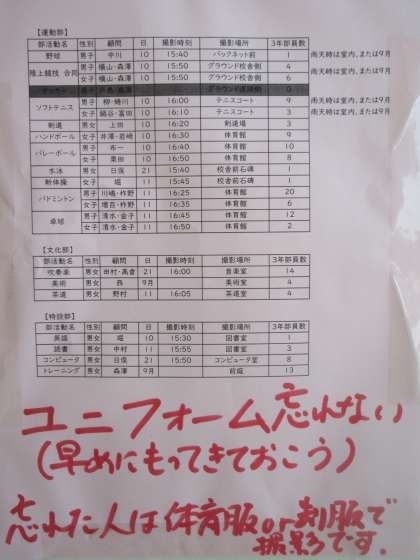 【運動部】
部活動名 性別 顧問 日 撮影時刻 撮影場所 3年部員数
野球 男子 中川 10 15:40 バックネット前 1 雨天時は室内、または9月
陸上競技 合同 男子 横山・森澤 10 15:50 グラウンド校舎側 4 雨天時は室内、または9月
女子 横山・森澤 10 15:50 グラウンド校舎側 6
男子 0
ソフトテニス 男子 柳・蜷川 10 16:00 テニスコート 9 雨天時は室内、または9月
女子 鍋谷・富田 10 16:10 テニスコート 3 雨天時は室内、または9月
剣道 男女 上田 10 16:20 剣道場 3
ハンドボール 女子 井澤・岩崎 10 16:30 体育館 9
バレーボール 男子 布一 10 16:40 体育館 9
女子 栗田 10 16:50 体育館 8
水泳 男女 日俣 21 15:40 校舎前石碑 1
新体操 女子 堀 11 15:45 校舎前石碑 1
バドミントン 男子 川嶋・柞野 11 16:25 体育館 20
女子 増苔・柞野 11 16:35 体育館 6
卓球 男子 清水・金子 11 16:45 体育館 12
女子 清水・金子 11 16:50 体育館 2
【文化部】
部活動名 性別 顧問 日 撮影時刻 撮影場所 3年部員数
吹奏楽 男女 田村・高倉 21 16:00 音楽室 14
美術 男女 西 9月 美術室 4
茶道 男女 野村 11 16:05 茶道室 4
【特設部】
部活動名 性別 顧問 日 撮影時刻 撮影場所 3年部員数
英語 男女 堀 10 15:30 図書室 1
読書 男女 中村 11 15:55 図書室 3
コンピュータ 男女 日俣 21 15:50 コンピュータ室 8
トレーニング 男女 森澤 9月 前庭 13
ユニフォーム忘れない
(早めにもってきておこう)
忘れた人は体育服or制服で
撮影です。